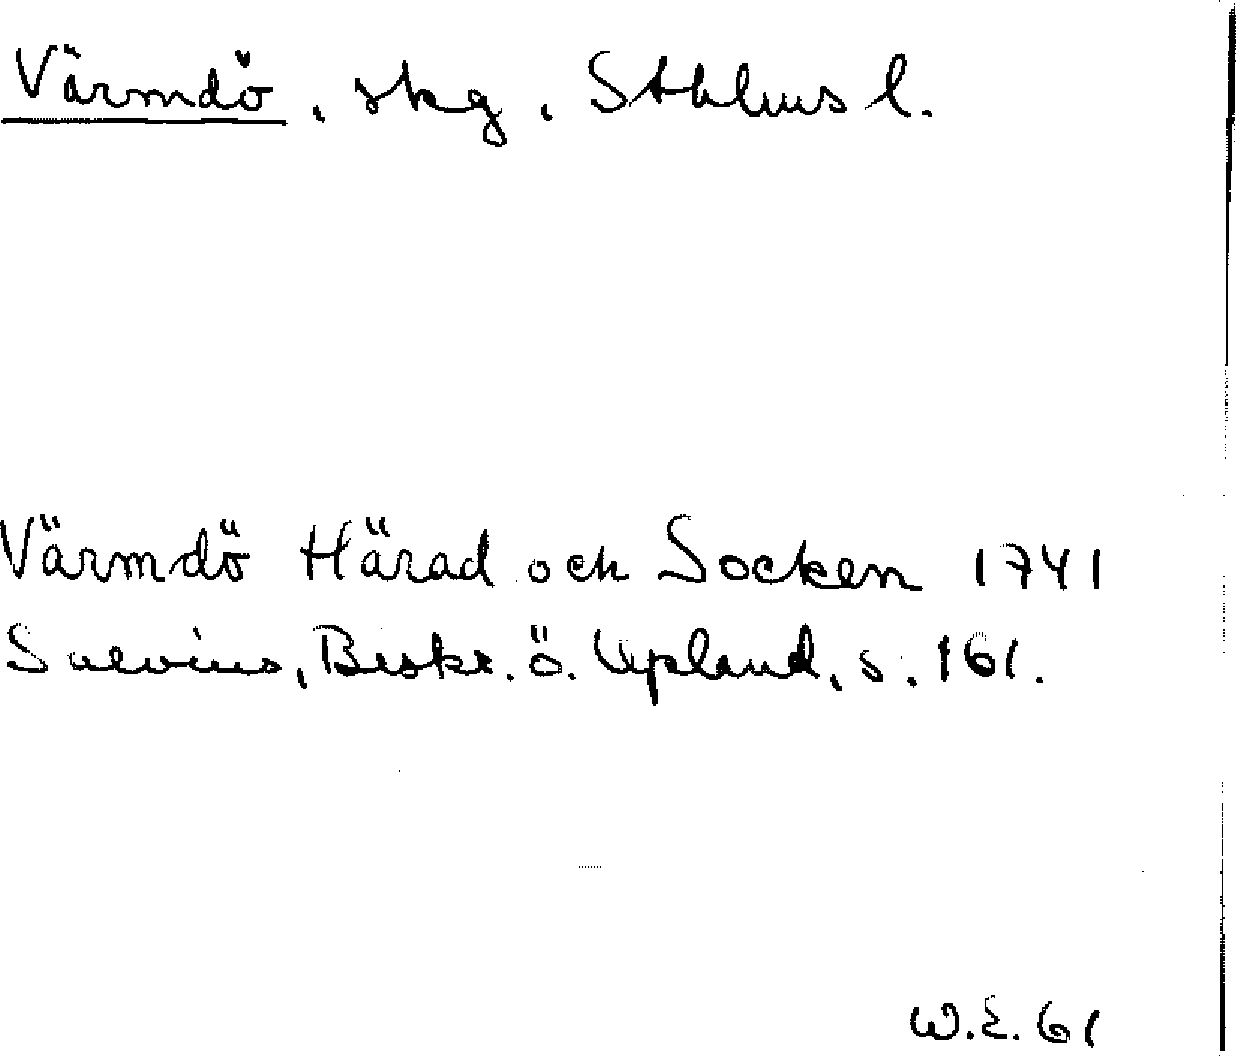 Värmdö, skg, Sthlms l.
Värmdö Härad och Socken 1741
Salvius, Beskr. ö. Upland, s. 161.
W.E. 61